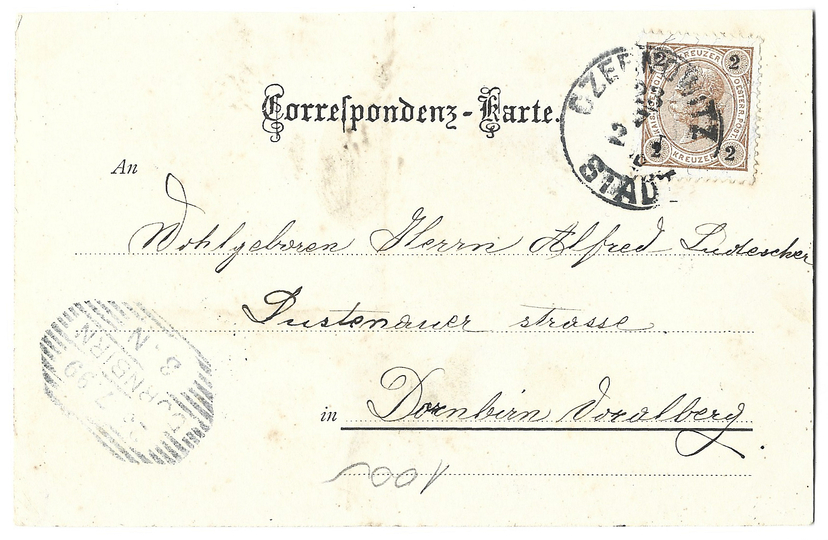 Correspondenz-Karte.
2 KREUZER 2
OESTERR. POST.
2 KREUZER 2
CZERNOWITZ
STADT
An
Wohlgeboren Herrn Alfred Ludescher
Lustenauer strasse
in Dornbirn Voralberg.
DORNBIRN
7 99
8. N